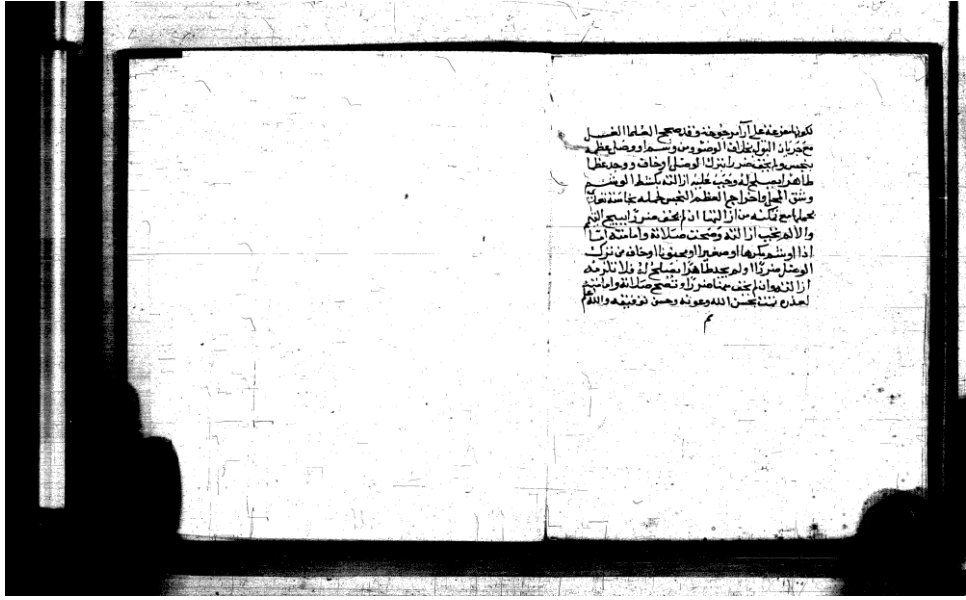 لكونها مفرعة على آراء مرجوحة وقد صحح العلما الغسل
مع جريان البول بخلاف الوضوء ومن وشم او وصل عظمه
بنجس ولم يخف ضررا بترك الوصل او خاف ووجد عظما
طاهرا يصلح له وجب عليه ازالته بكشط الوشم
وشق المحل واخراج العظم النجس لحمله نجاسة تعدى
بحملها مع تمكنه من ازالتها اذ لم يخف ضررا يبيح التيمم
والا لم يجب ازالته وصحت صلاته وامامته اما
اذا وشم مكرها او صغيرا او مجنونا او خاف من ترك
الوصل ضررا ولم يجد طاهرا يصلح له فلا تلزمه
ازالته وان لم يخف منها ضررا وتصح صلاته وامامته
لعذره تمت بحسن الله وعونه وحسن توفيقه والله اعلم
تم